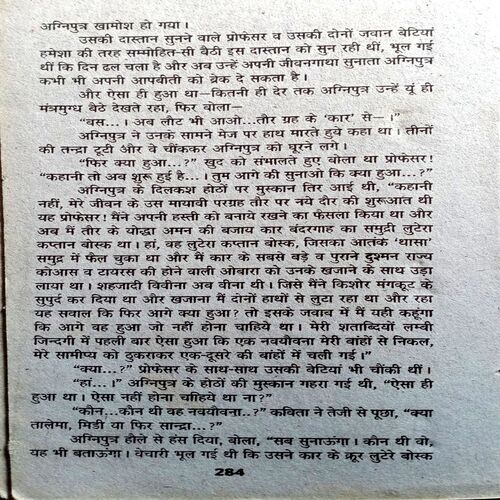 अग्निपुत्र खामोश हो गया।
उसकी दास्तान सुनने वाले प्रोफेसर व उसकी दोनों जवान बेटियां
हमेशा की तरह सम्मोहित-सी बैठी इस दास्तान को सुन रही थीं, भूल गई
थीं कि दिन ढल चला है और अब उन्हें अपनी जीवनगाथा सुनाता अग्निपुत्र
कभी भी अपनी आपबीती को ब्रेक दे सकता है।
और ऐसा ही हुआ था—कितनी ही देर तक अग्निपुत्र उन्हें यूं ही
मंत्रमुग्ध बैठे देखते रहा, फिर बोला—
"बस...। अब लौट भी आओ...तौर ग्रह के 'कार' से—।"
अग्निपुत्र ने उनके सामने मेज पर हाथ मारते हुये कहा था। तीनों
की तन्द्रा टूटी और वे चौंककर अग्निपुत्र को घूरने लगे।
"फिर क्या हुआ...?" खुद को संभालते हुए बोला था प्रोफेसर!
"कहानी तो अब शुरू हुई है...। तुम आगे की सुनाओ कि क्या हुआ...?"
अग्निपुत्र के दिलकश होठों पर मुस्कान तिर आई थी, "कहानी
नहीं, मेरे जीवन के उस मायावी परग्रह तौर पर नये दौर की शुरूआत थी
यह प्रोफेसर! मैंने अपनी हस्ती को बनाये रखने का फैसला किया था और
अब मैं तौर के योद्धा अमन की बजाय कार बंदरगाह का समुद्री लुटेरा
कप्तान बोस्क था। हां, वह लुटेरा कप्तान बोस्क, जिसका आतंक 'थासा'
समुद्र में फैल चुका था और मैं कार के सबसे बड़े व पुराने दुश्मन राज्य
कोआस व टायरस की होने वाली ओबारा को उनके खजाने के साथ उड़ा
लाया था। शहजादी विवीना अब वीना थी। जिसे मैंने किशोर मंगकूट के
सुपुर्द कर दिया था और खजाना मैं दोनों हाथों से लुटा रहा था और रहा
यह सवाल कि फिर आगे क्या हुआ? तो इसके जवाब में मैं यही कहूंगा
कि आगे वह हुआ जो नहीं होना चाहिये था। मेरी शताब्दियों लम्बी
जिन्दगी में पहली बार ऐसा हुआ कि एक नवयौवना मेरी बांहों से निकल,
मेरे सामीप्य को ठुकराकर एक-दूसरे की बांहों में चली गई।"
"क्या...?" प्रोफेसर के साथ-साथ उसकी बेटियां भी चौंकी थीं।
"हां...।" अग्निपुत्र के होठों की मुस्कान गहरा गई थी, "ऐसा ही
हुआ था। ऐसा नहीं होना चाहिये था ना?"
"कौन...कौन थी वह नवयौवना..?" कविता ने तेजी से पूछा, "क्या
तालेमा, मिडी या फिर सान्द्रा...?"
अग्निपुत्र हौले से हंस दिया, बोला, "सब सुनाऊंगा। कौन थी वो,
यह भी बताऊंगा। बेचारी भूल गई थी कि उसने कार के क्रूर लुटेरे बोस्क
284